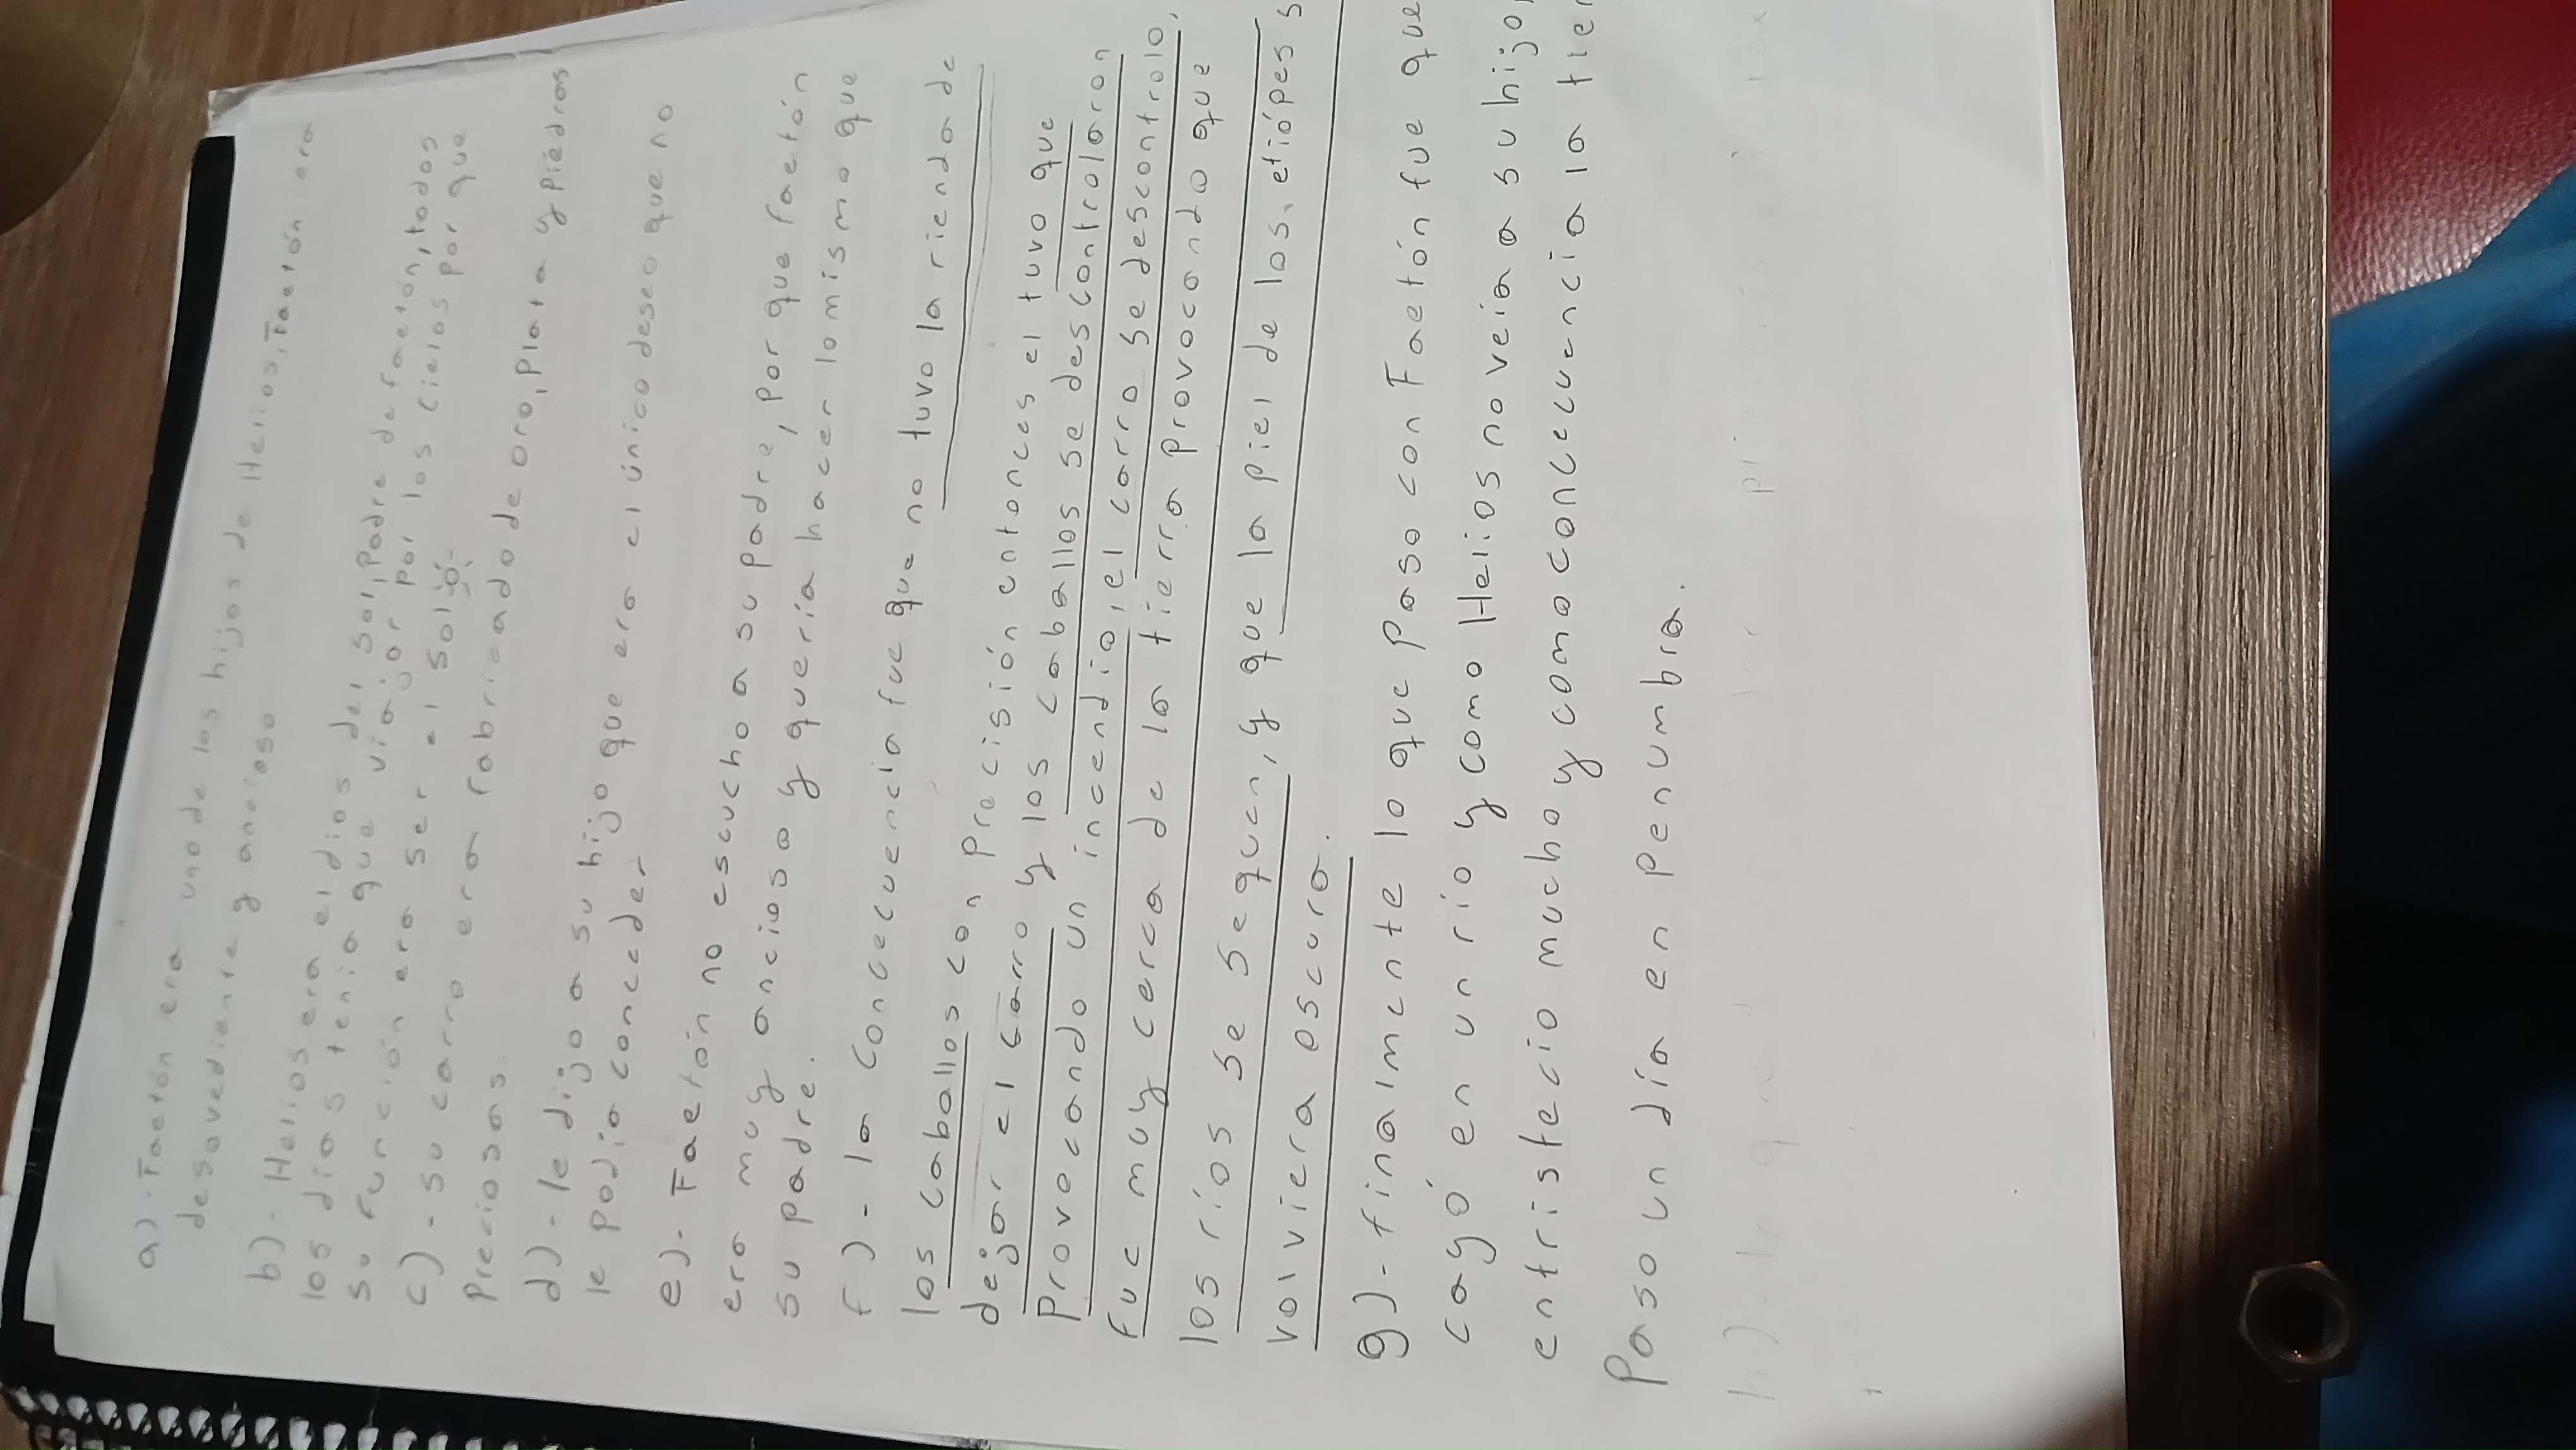 a).- Faetón era uno de los hijos de Helios, Faetón era
desovediente y ancioso
b).- Helios era el dios del sol, padre de faetón, todos
los dias tenia que viajar por los cielos por que
so función era ser el sol
c).- su carro era fabricado de oro, plata y piedras
preciosas.
d).- le dijo a su hijo que era el único deseo que no
le podia conceder
e).- Faetón no escucho a su padre, por que faetón
era muy ancioso y quería hacer lo mismo que
su padre.
f).- la concecuencia fue que no tuvo la rienda de
los caballos con precisión entonces el tuvo que
dejar el carro y los caballos se descontrolaron
provocando un incendio, el carro se descontrolo,
fue muy cerca de la tierra provocando que
los ríos se sequen, y que la piel de los etiópes s
volviera oscura.
g).- finalmente lo que paso con Faetón fue que
cayó en un río y como Helios no veia a su hijo,
entristecio mucho y como concecuencia la tier
Paso un día en penumbra.
h)